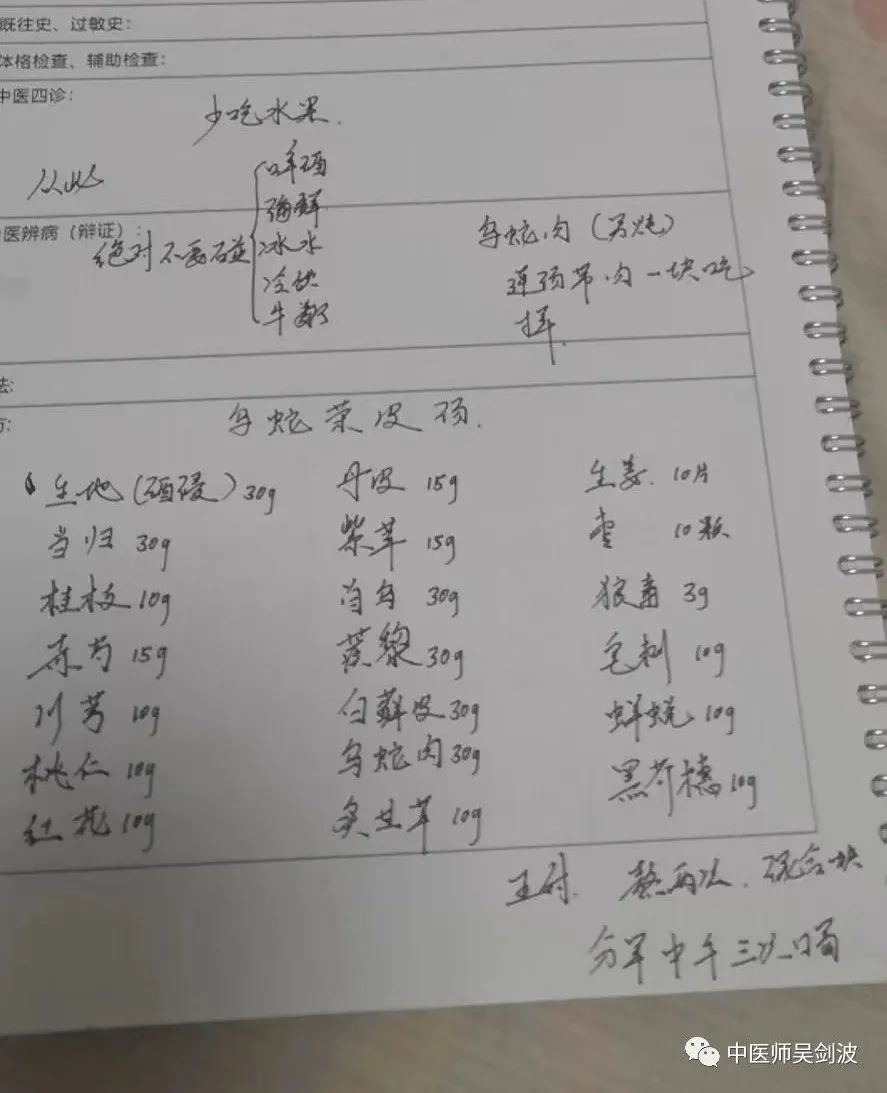 既往史、过敏史：
体格检查、辅助检查：
中医四诊：
少吃水果.
从此
啤酒
海鲜
医辨病（辩证）：
绝对不要碰
冰水
冷饮
牛奶
乌蛇肉（另炖）
连汤带肉一块吃
掉.
法:
方:
乌蛇荣皮汤.
生地（酒浸）30g 丹皮 15g 生姜. 10片
当归 30g 紫草 15g 枣 10颗
桂枝 10g 首乌 30g 狼毒 3g
赤芍 15g 蒺藜 30g 皂刺 10g
川芎 10g 白藓皮 30g 蝉蜕 10g
桃仁 10g 乌蛇肉 30g 黑芥穗 10g
红花 10g 炙甘草 10g
五付. 熬两次. 混合一块
分早中午三次喝
中医师吴剑波